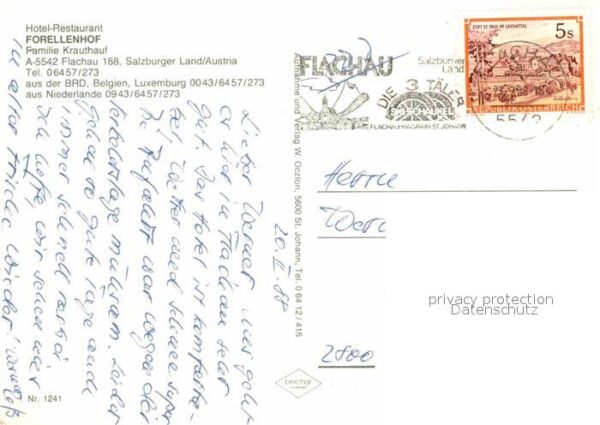 Hotel-Restaurant
FORELLENHOF
Familie Krauthauf
A-5542 Flachau 188, Salzburger Land/Austria
Tel. 06457/273
aus der BRD, Belgien, Luxemburg 0043/6457/273
aus Niederlande 0943/6457/273
FLACHAU
Salzburger
Land
DIE 3 TÄLER
SKISCHAUKEL
FLACHAU-WAGRAIN-ST. JOHANN
STIFT ST. PAUL IM LAVANTTAL
5 S
REPUBLIK ÖSTERREICH
5542
20. II. 88
Lieber Werner, mir geht
es hier in Flachau sehr
gut. Das Hotel ist komforta-
bel, Wetter und Schnee super
die Zufahrt war wegen der
mühsam. Leider
gute Tage auch
immer schnell vorbei
Ich hoffe, wir sehen uns
in alter Frische wieder!
Herrn
Wern
2800
Aufnahme und Verlag W. Oczlon, 5600 St. Johann, Tel. 0 64 12 / 416
privacy protection
Datenschutz
pechal
Nr. 1241